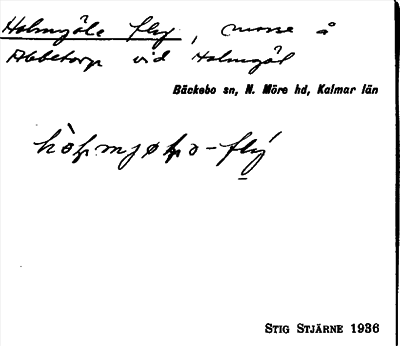 Holmgöle fly, mosse å
Abbetorp vid Holmgöl
Bäckebo sn, N. Möre hd, Kalmar län
STIG STJÄRNE 1936